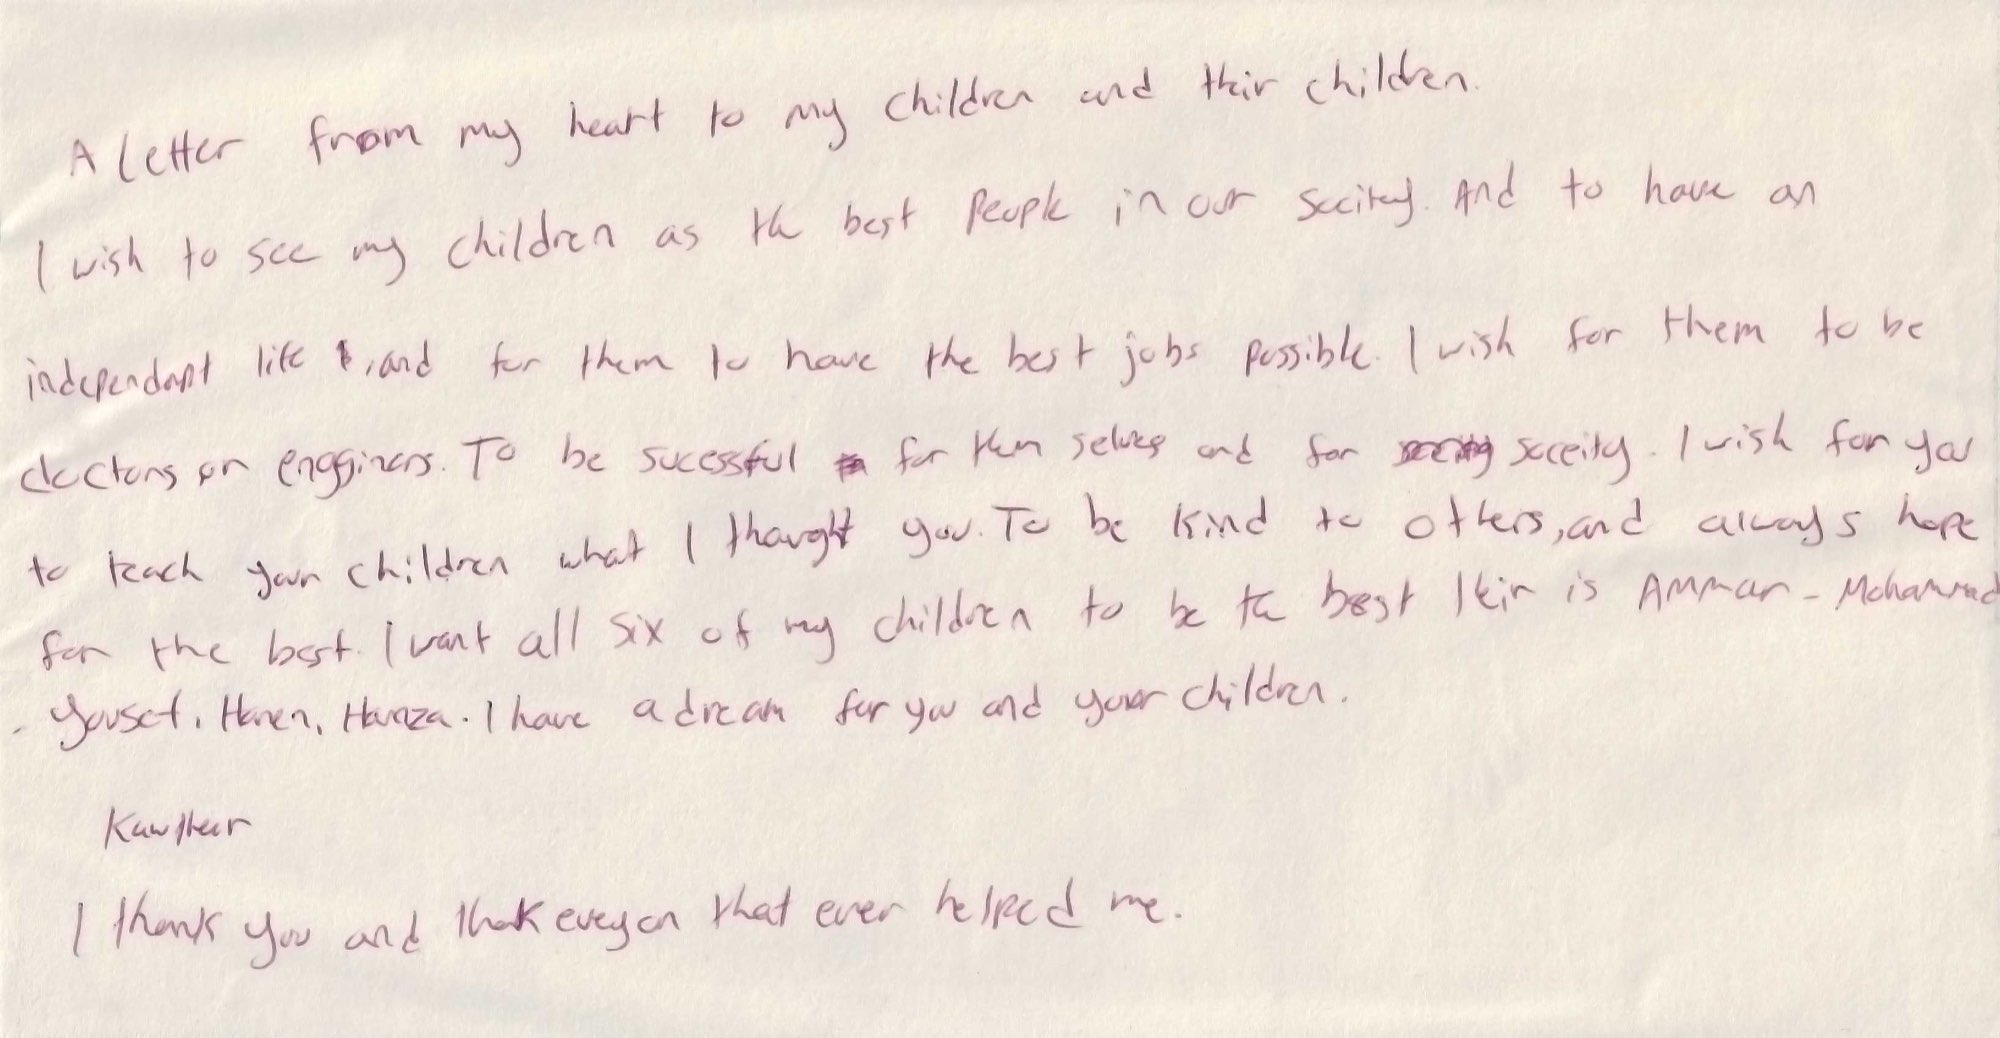 A letter from my heart to my children and thir children.
I wish to see my children as the best people in our socitey. And to have an
independant life, and for them to have the best jobs possible. I wish for them to be
doctors or engginers. To be sucessful for them selves and for soceity. I wish for you
to teach your children what I thaught you. To be kind to others, and always hope
for the best. I want all six of my children to be the best is Ammar - Mohammad
- Yousef, Hanen, Hamza. I have a dream for you and your children.
Kawthar
I thank you and thank eveyon that ever helped me.